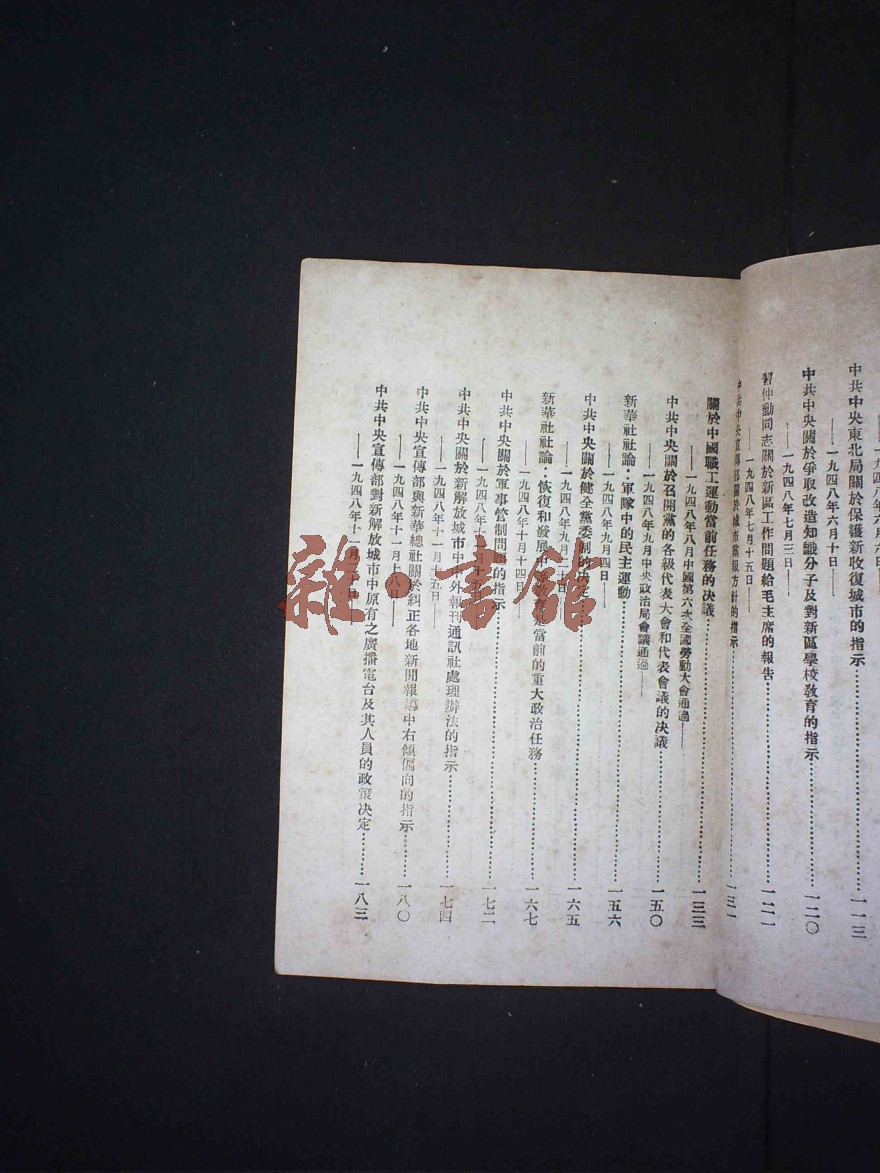 一九四八年六月六日——
中共中央東北局關於保護新收復城市的指示………一一三
——一九四八年六月十日——
中共中央關於爭取改造知識分子及對新區學校敎育的指示………一二〇
——一九四八年七月三日——
習仲勳同志關於新區工作問題給毛主席的報告………一二一
——一九四八年七月十五日——
中共中央宣傳部關於城市黨報方針的指示………一三一
關於中國職工運動當前任務的決議………一三三
——一九四八年八月中國第六次全國勞動大會通過——
中共中央關於召開黨的各級代表大會和代表會議的決議………一五〇
——一九四八年九月中央政治局會議通過——
新華社社論：軍隊中的民主運動………一五六
——一九四八年九月四日——
中共中央關於健全黨委制的決定………一六五
——一九四八年九月二十日——
新華社社論：恢復和發展中 是當前的重大政治任務………一六七
——一九四八年十月十四日——
中共中央關於軍事管制問題的指示………一七二
——一九四八年十一月十五日——
中共中央關於新解放城市中中外報刊通訊社處理辦法的指示………一七四
——一九四八年十一月十五日——
中共中央宣傳部與新華總社關於糾正各地新聞報導中右傾偏向的指示………一八〇
——一九四八年十一月十八日——
中共中央宣傳部對新解放城市中原有之廣播電台及其人員的政策決定………一八三
——一九四八年十一月二十日——
雜·書館